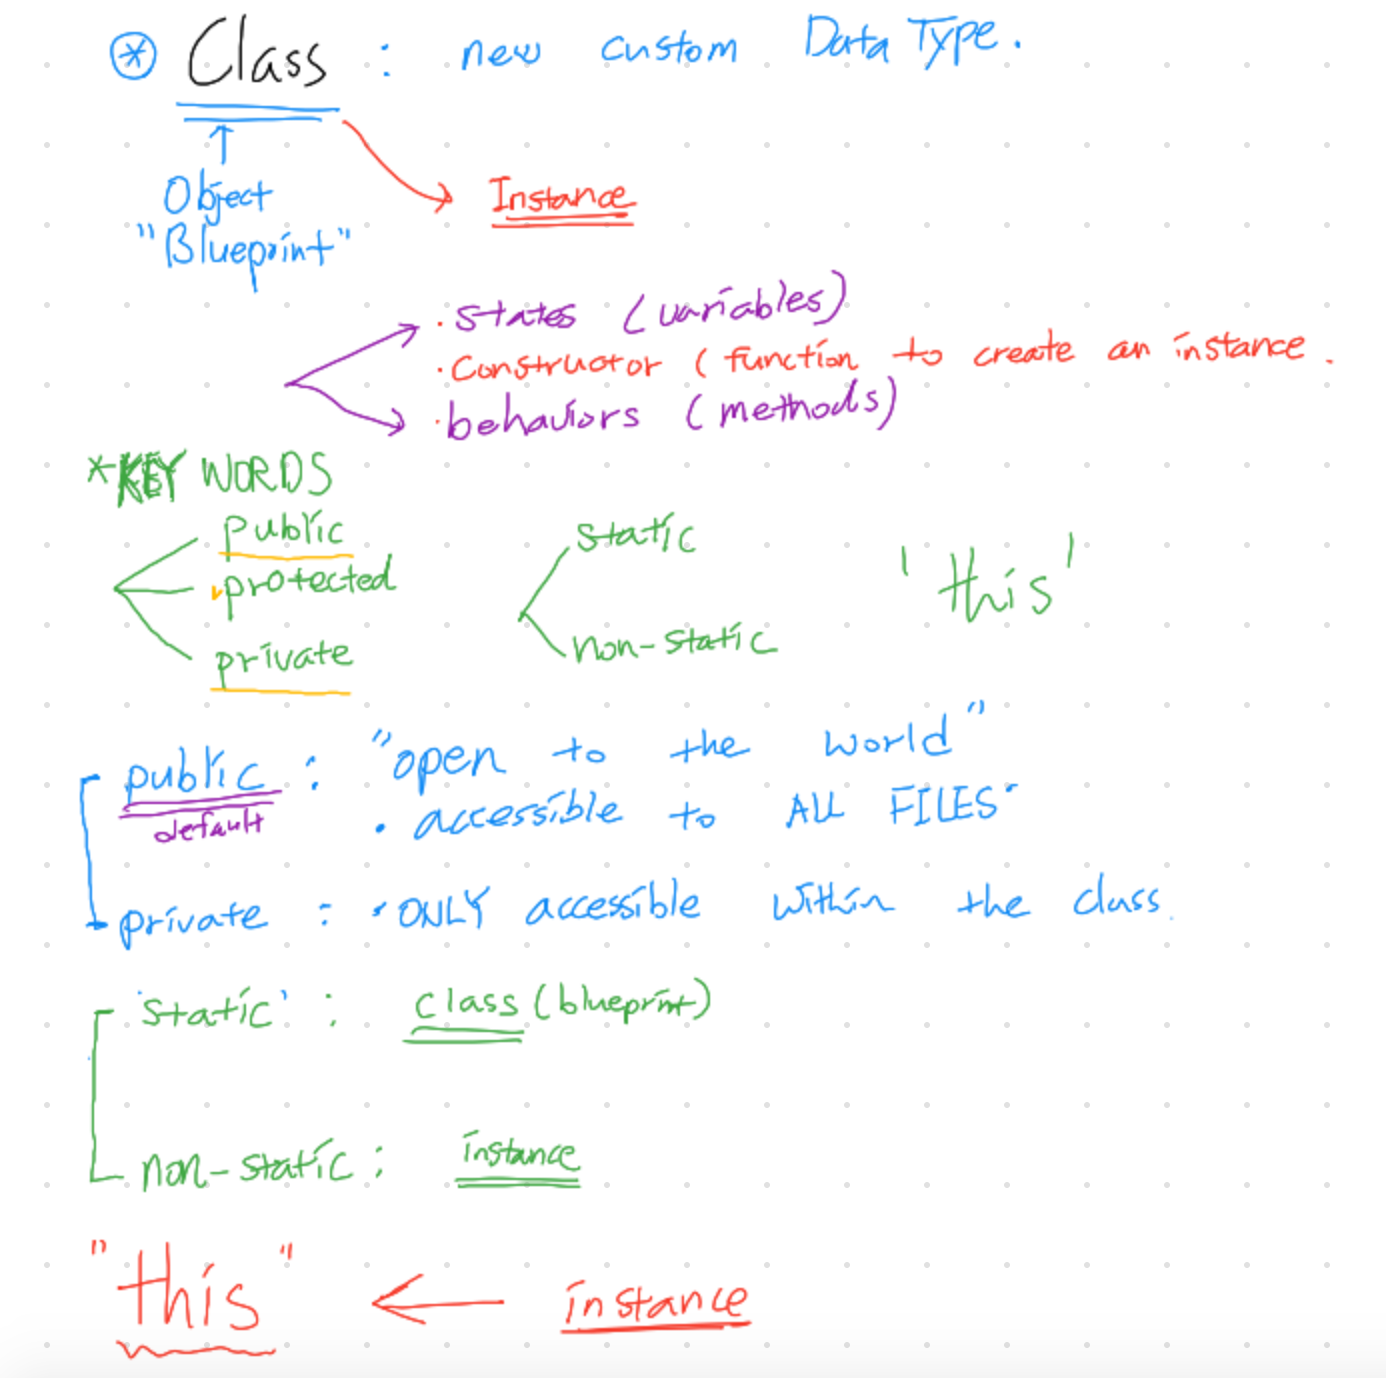 * Class : new custom Data Type.
Object
"Blueprint"
Instance
· states (variables)
· Constructor ( function to create an instance .
· behaviors (methods)
* KEY WORDS
public
protected
private
static
non-static
'this'
public : "open to the world"
default
· accessible to ALL FILES·
private : · ONLY accessible within the class.
'static' : class (blueprint)
non-static : instance
"this" ← instance